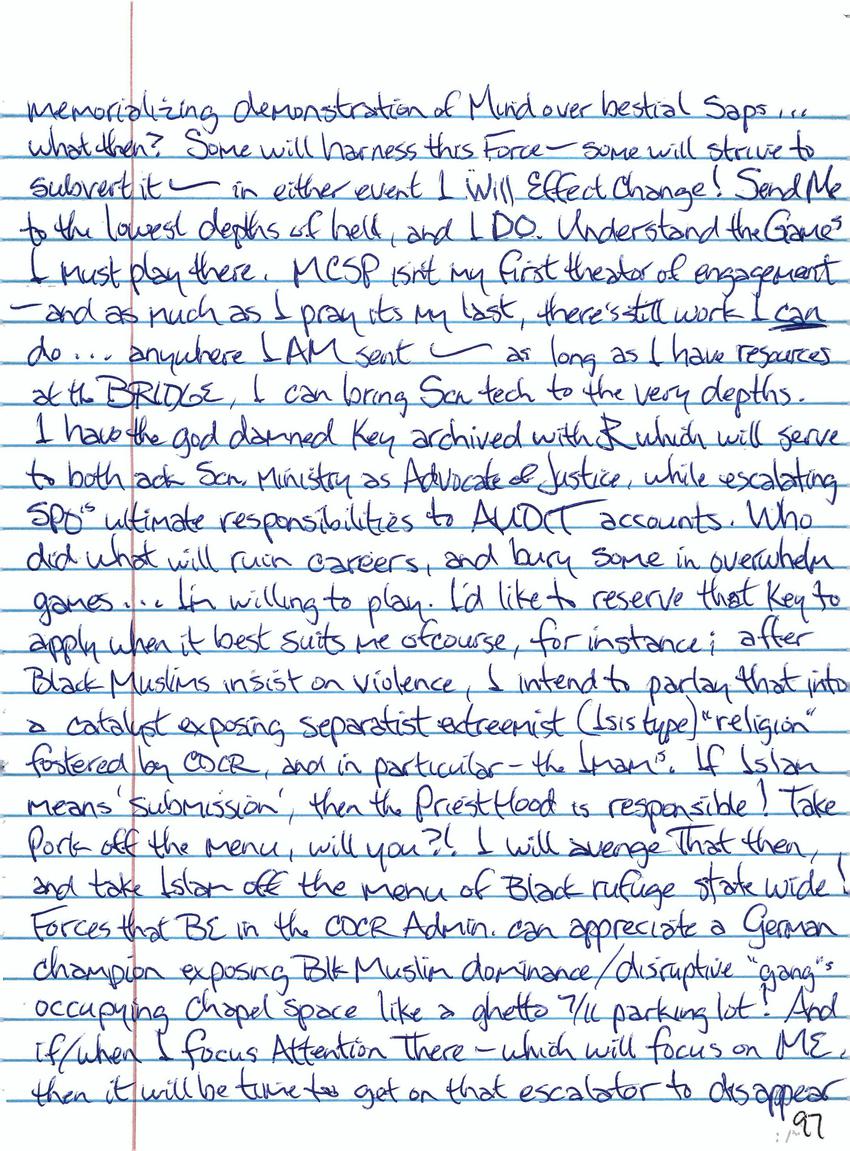 memorializing demonstration of Mind over bestial Saps ...
what then? Some will harness this Force — some will strive to
subvert it — in either event I Will Effect Change! Send Me
to the lowest depths of hell, and I DO. Understand the Games
I must play there. MCSP isn't my first theator of engagement
— and as much as I pray its my last, there's still work I can
do ... anywhere I AM sent — as long as I have resources
at the BRIDGE, I can bring Scn tech to the very depths.
I have the god damned Key archived with R which will serve
to both ack Scn. Ministry as Advocate of Justice, while escalating
SPO's ultimate responsibilities to AUDIT accounts. Who
did what will ruin careers, and bury some in overwhelm
games ... I'm willing to play. I'd like to reserve that Key to
apply when it best suits me ofcourse, for instance; after
Black Muslims insist on violence, I intend to parlay that into
a catalyst exposing separatist extreemist (Isis type) "religion"
fostered by CDCR, and in particular - the Imam's. If Islam
means 'submission', then the PriestHood is responsible! Take
Pork off the menu, will you?! I will avenge That then,
and take Islam off the menu of Black rufuge state wide!
Forces that BE in the CDCR Admin. can appreciate a German
champion exposing Blk Muslim dominance/disruptive "gang"s
occupying Chapel space like a ghetto 7/11 parking lot! And
if/when I focus Attention There - which will focus on ME,
then it will be time to get on that escalator to disappear
97